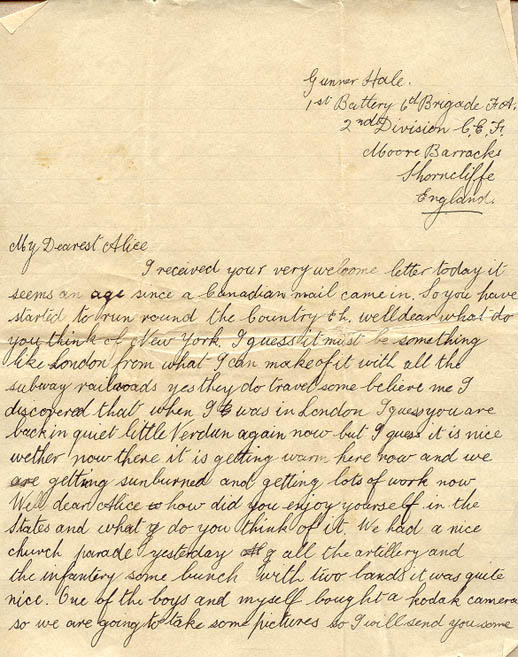 Gunner Hale.
1st Battery 6d Brigade F.A.
2nd Division C.E.F.
Moore Barracks
Shorncliffe
England.
My Dearest Alice
I received your very welcome letter today it
seems an age since a Canadian mail came in. So you have
started to run round the Country Eh. well dear what do
you think of New York. I guess it must be something
like London from what I can make of it with all the
subway railroads yes they do travel some believe me I
discovered that when I was in London I guess you are
back in quiet little Verdun again now but I guess it is nice
wether now there it is getting warm here now and we
are getting sunburned and getting lots of work now
Well dear Alice how did you enjoy yourself in the
States and what do you think of it. We had a nice
church parade yesterday of all the artillery and
the infantery some bunch with two bands it was quite
nice. One of the boys and myself bought a kodak camera
so we are going to take some pictures so I will send you some